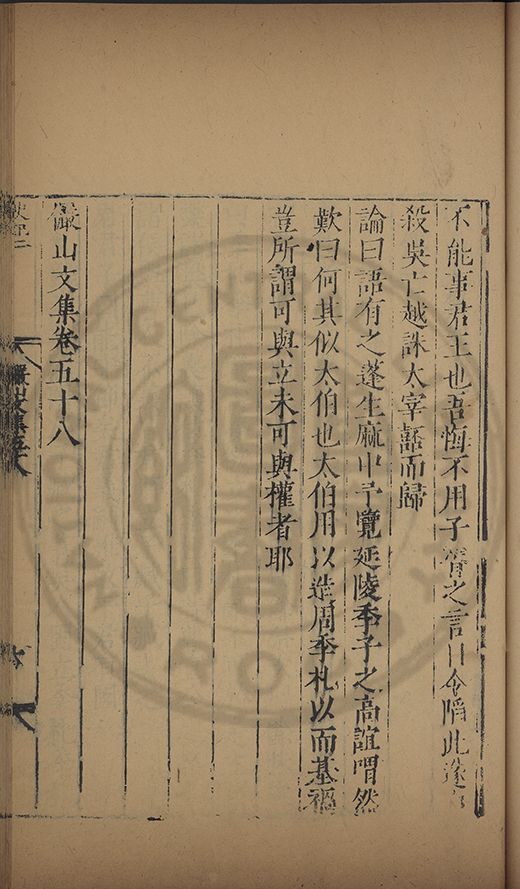 不能事君王也吾悔不用子胥之言自令陷此遂自
殺吳亡越誅太宰嚭而歸
論曰語有之蓬生麻中予覽延陵季子之高誼喟然
歎曰何其似太伯也太伯用以造周季札以而基禍
豈所謂可與立未可與權者耶
儼山文集卷五十八